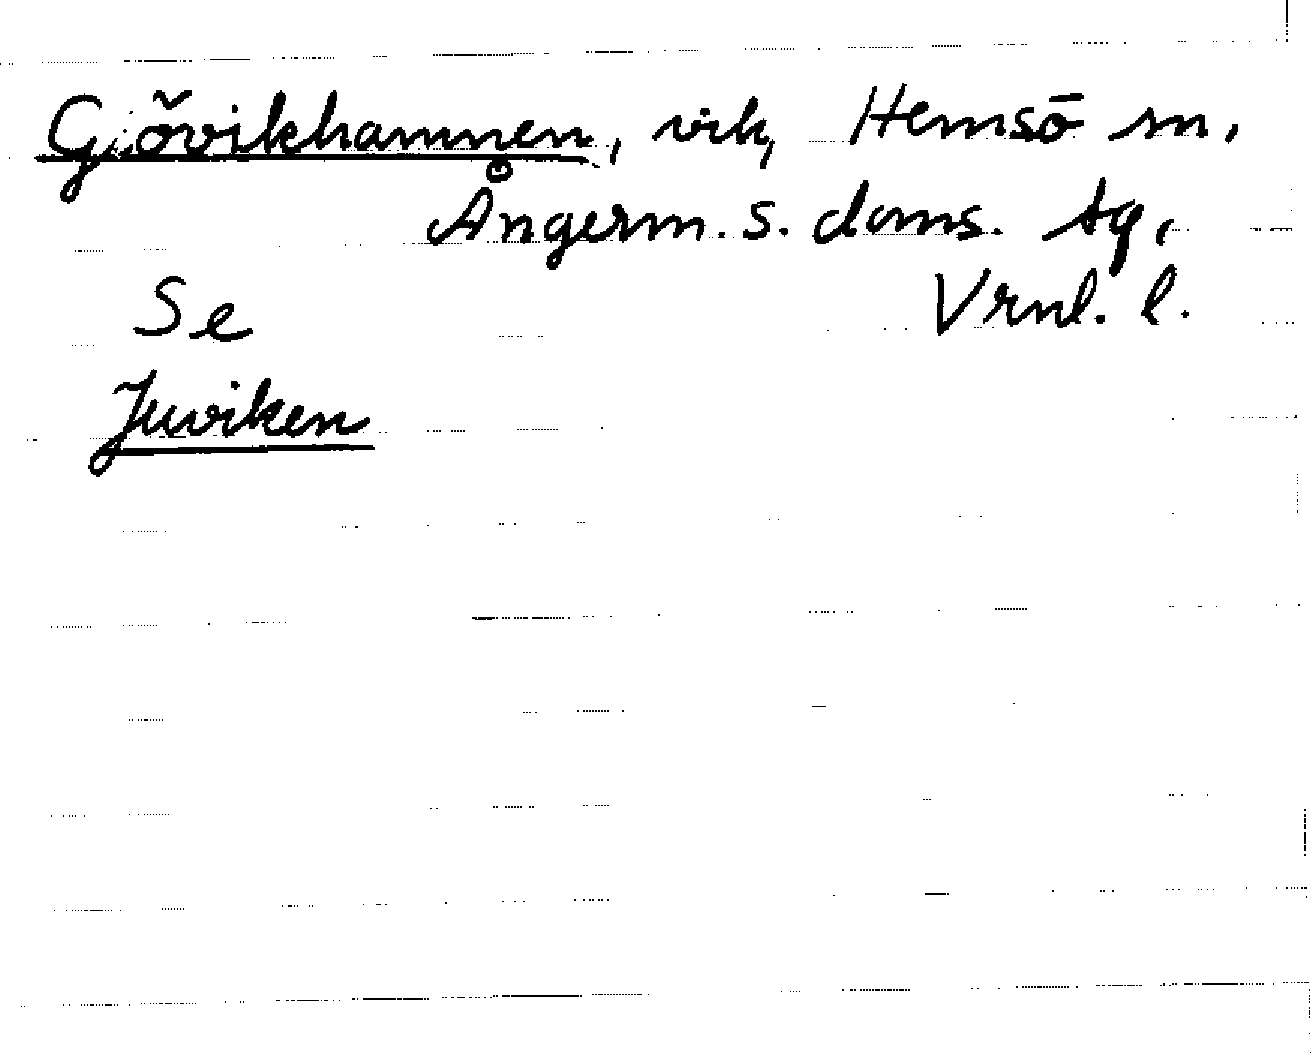 Gjövikhamnen, vik, Hemsö sn,
Ångerm. s. doms. tg,
Vrnl. l.
Se
Juviken